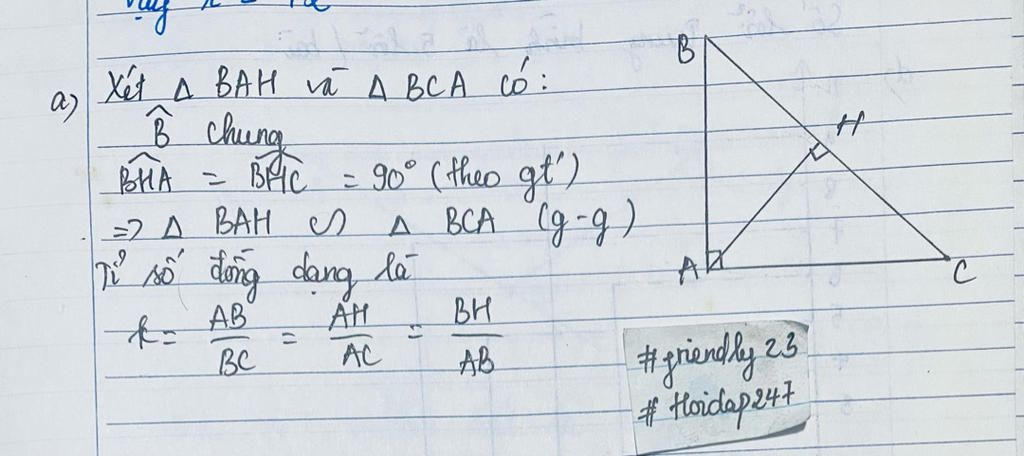 a) Xét Δ BAH và Δ BCA có:
B̂ chung
BHA = BHC = 90° (theo gt)
=> Δ BAH ∽ Δ BCA (g-g)
Tỉ số đồng dạng là
k = AB/BC = AH/AC = BH/AB
B
H
A
C
#friendly 23
# Hoidap247